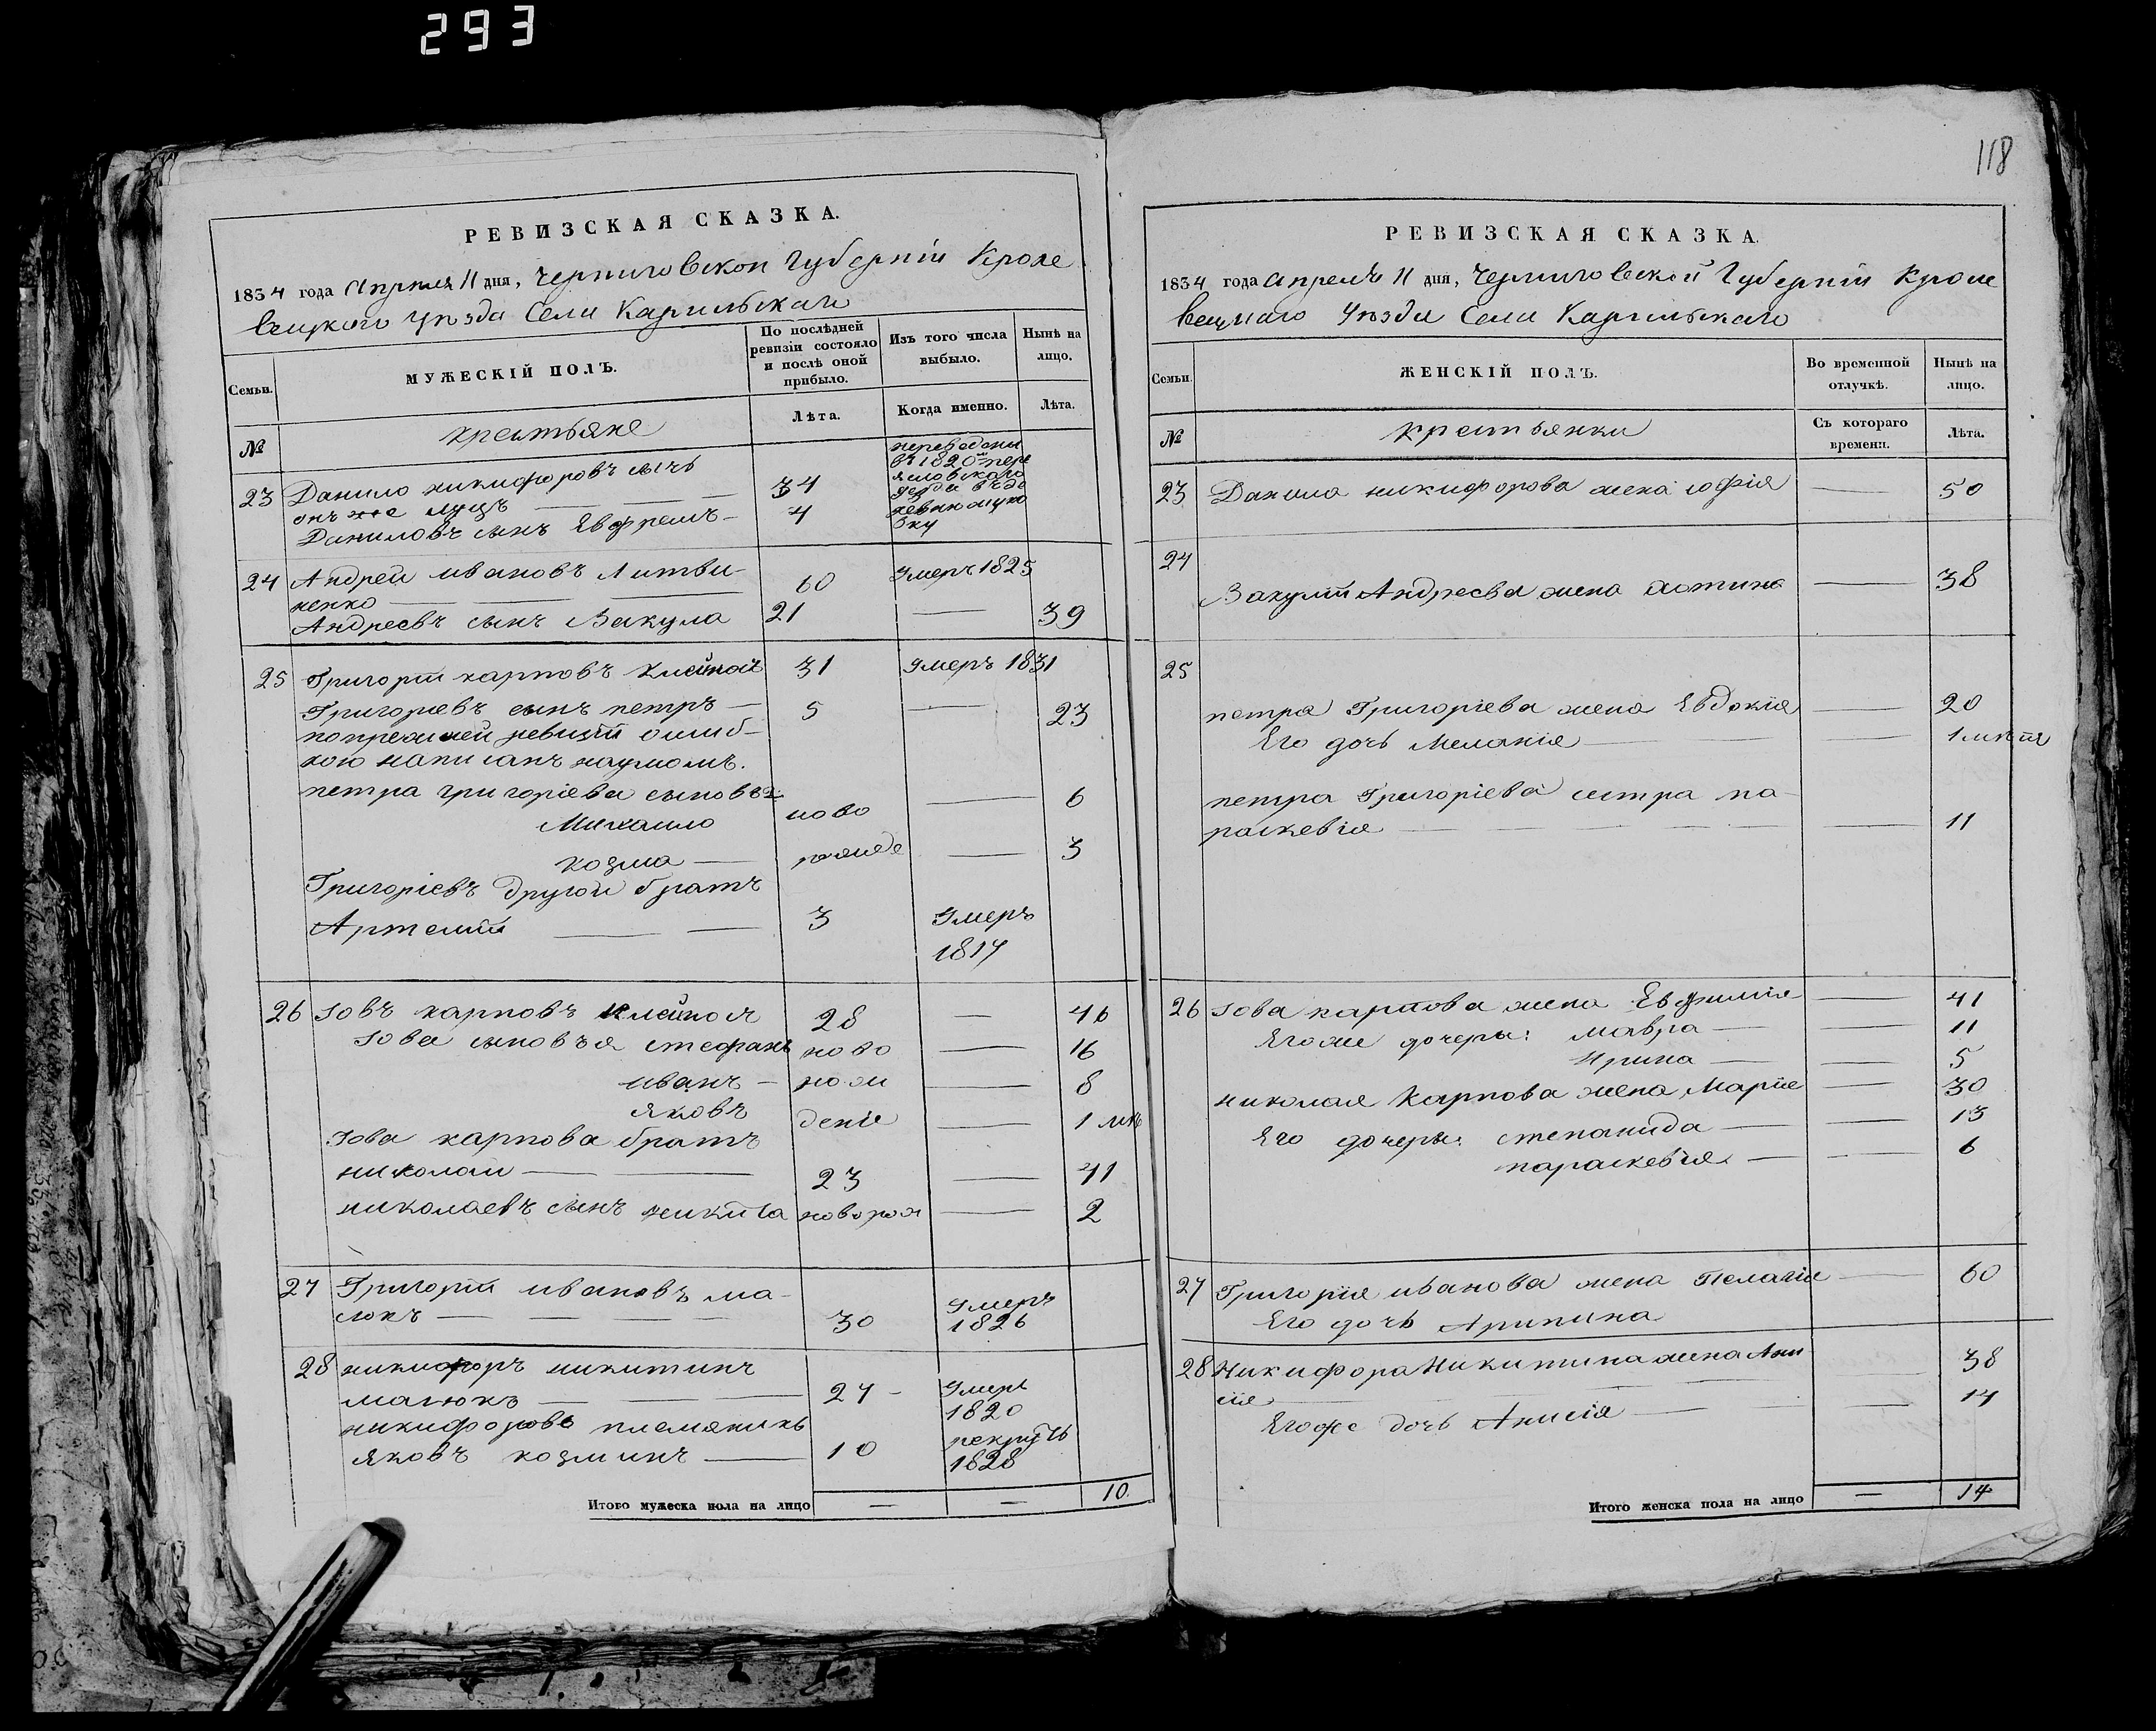 293
118
РЕВИЗСКАЯ СКАЗКА.
1834 года Апреля 11 дня, Черниговской Губерніи Кроле
вецкого Уезда Села Карильскаго
Семьи.
МУЖЕСКІЙ ПОЛЪ.
По послѣдней ревизіи состояло и послѣ оной прибыло.
Изъ того числа выбыло.
Нынѣ на лицо.
№
крестьяне
Лѣта.
Когда именно.
Лѣта.
23 Данило никифоровъ сычъ
онъ же 34
Даниловъ сынъ Евфремъ 4
переведены
въ 1820 пере
яславского
24 Андрей ивановъ Литви-
ненко 60 Умеръ 1825
Андреевъ сынъ Вакула 21 — 39
25 Григорій карповъ 31 умеръ 1831
Григорьевъ сынъ петръ — 5 — 23
попрежней ревизіи ошиб-
кою написанъ наумомъ.
петра григоріева сыновья
Михайло ново — 6
козма — рожде — 3
Григоріевъ другой братъ
Артемій 3 Умеръ
1817
26 Іовъ карповъ 28 — 46
Іова сыновья стефанъ ново — 16
иванъ — рож — 8
яковъ деніе — 1
Іова карпова братъ
николай 23 — 41
николаевъ сынъ никита новорож — 2
27 Григорій ивановъ ма-
люкъ 30 Умеръ
1826
28 никифоръ никитинъ
малюкъ 27 - Умеръ
1820
никифорова племяникъ
яковъ козминъ 10 рекрутъ
1828
Итого мужеска пола на лицо — — 10.
РЕВИЗСКАЯ СКАЗКА.
1834 года апреля 11 дня, Черниговской Губерніи Кроле
вецкаго Уезда Села Карильскаго
Семьи.
ЖЕНСКІЙ ПОЛЪ.
Во временной отлучкѣ.
Нынѣ на лицо.
№
крестьянки
Съ котораго времени.
Лѣта.
23 Данила никифорова жена софія — 50
24
Вакулы Андреева жена — 38
25
петра Григоріева жена Евдокія — 20
Его дочь Меланія — 1
петра Григоріева сестра па-
раскевія — 11
26 Іова карпова жена Евфимія — 41
Егоже дочеры: мавра — 11
Ирина — 5
николая Карпова жена Марія — 30
Его дочеры: степанида — 13
параскевія — 6
27 Григорія иванова жена Пелагія — 60
Его дочь
28 Никифора Никитина жена 38
Егоже дочь Анисія — 14
Итого женска пола на лицо — 14